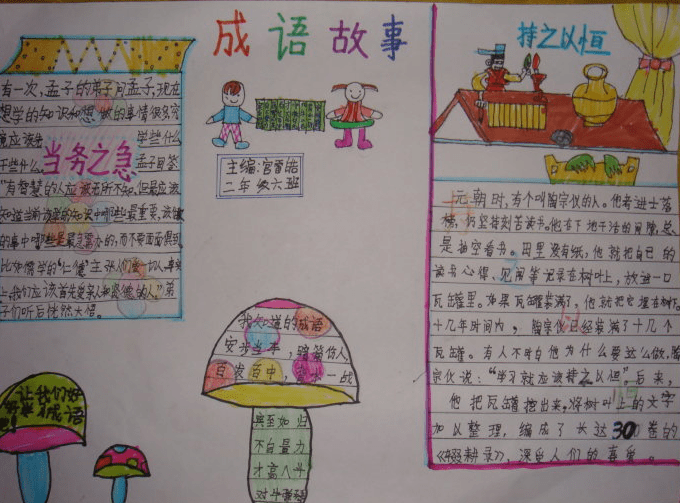 成语故事
主编:宫
二年级六班
当务之急
有一次,孟子的弟子问孟子,现在
想学的知识和想做的事情很多,究
竟应该先 学些什么
干些什么。 孟子回答:
"有智慧的人应该无所不知,但最应该
知道当前该
的事中哪些是最
比如儒学的"仁德"主张人们爱一切人,事实
上,我们应该首先爱亲人和贤德的人"弟
子们听后恍然大悟。
让我们好
成语
我知道的成语
安步当车,骑
百发百中,一战
宾至如归
不自量力
才高八斗
持之以恒
元朝时,有个叫陶宗仪的人。他考进士落
榜,仍坚持刻苦读书。他在下地干活的间隙,总
是抽空看书。田里没有纸,他就把自己的
读书心得、见闻等记录在树叶上,放进一口
瓦罐里。如果瓦罐装满了,他就把它埋在树下。
十几年时间内,陶宗仪已经装满了十几个
瓦罐。有人不明白他为什么要这么做,陶
宗仪说:"学习就应该持之以恒"。后来,
他把瓦罐挖出来,将树叶上的文字
加以整理,编成了长达30卷的
《辍耕录》,深受人们的喜爱。